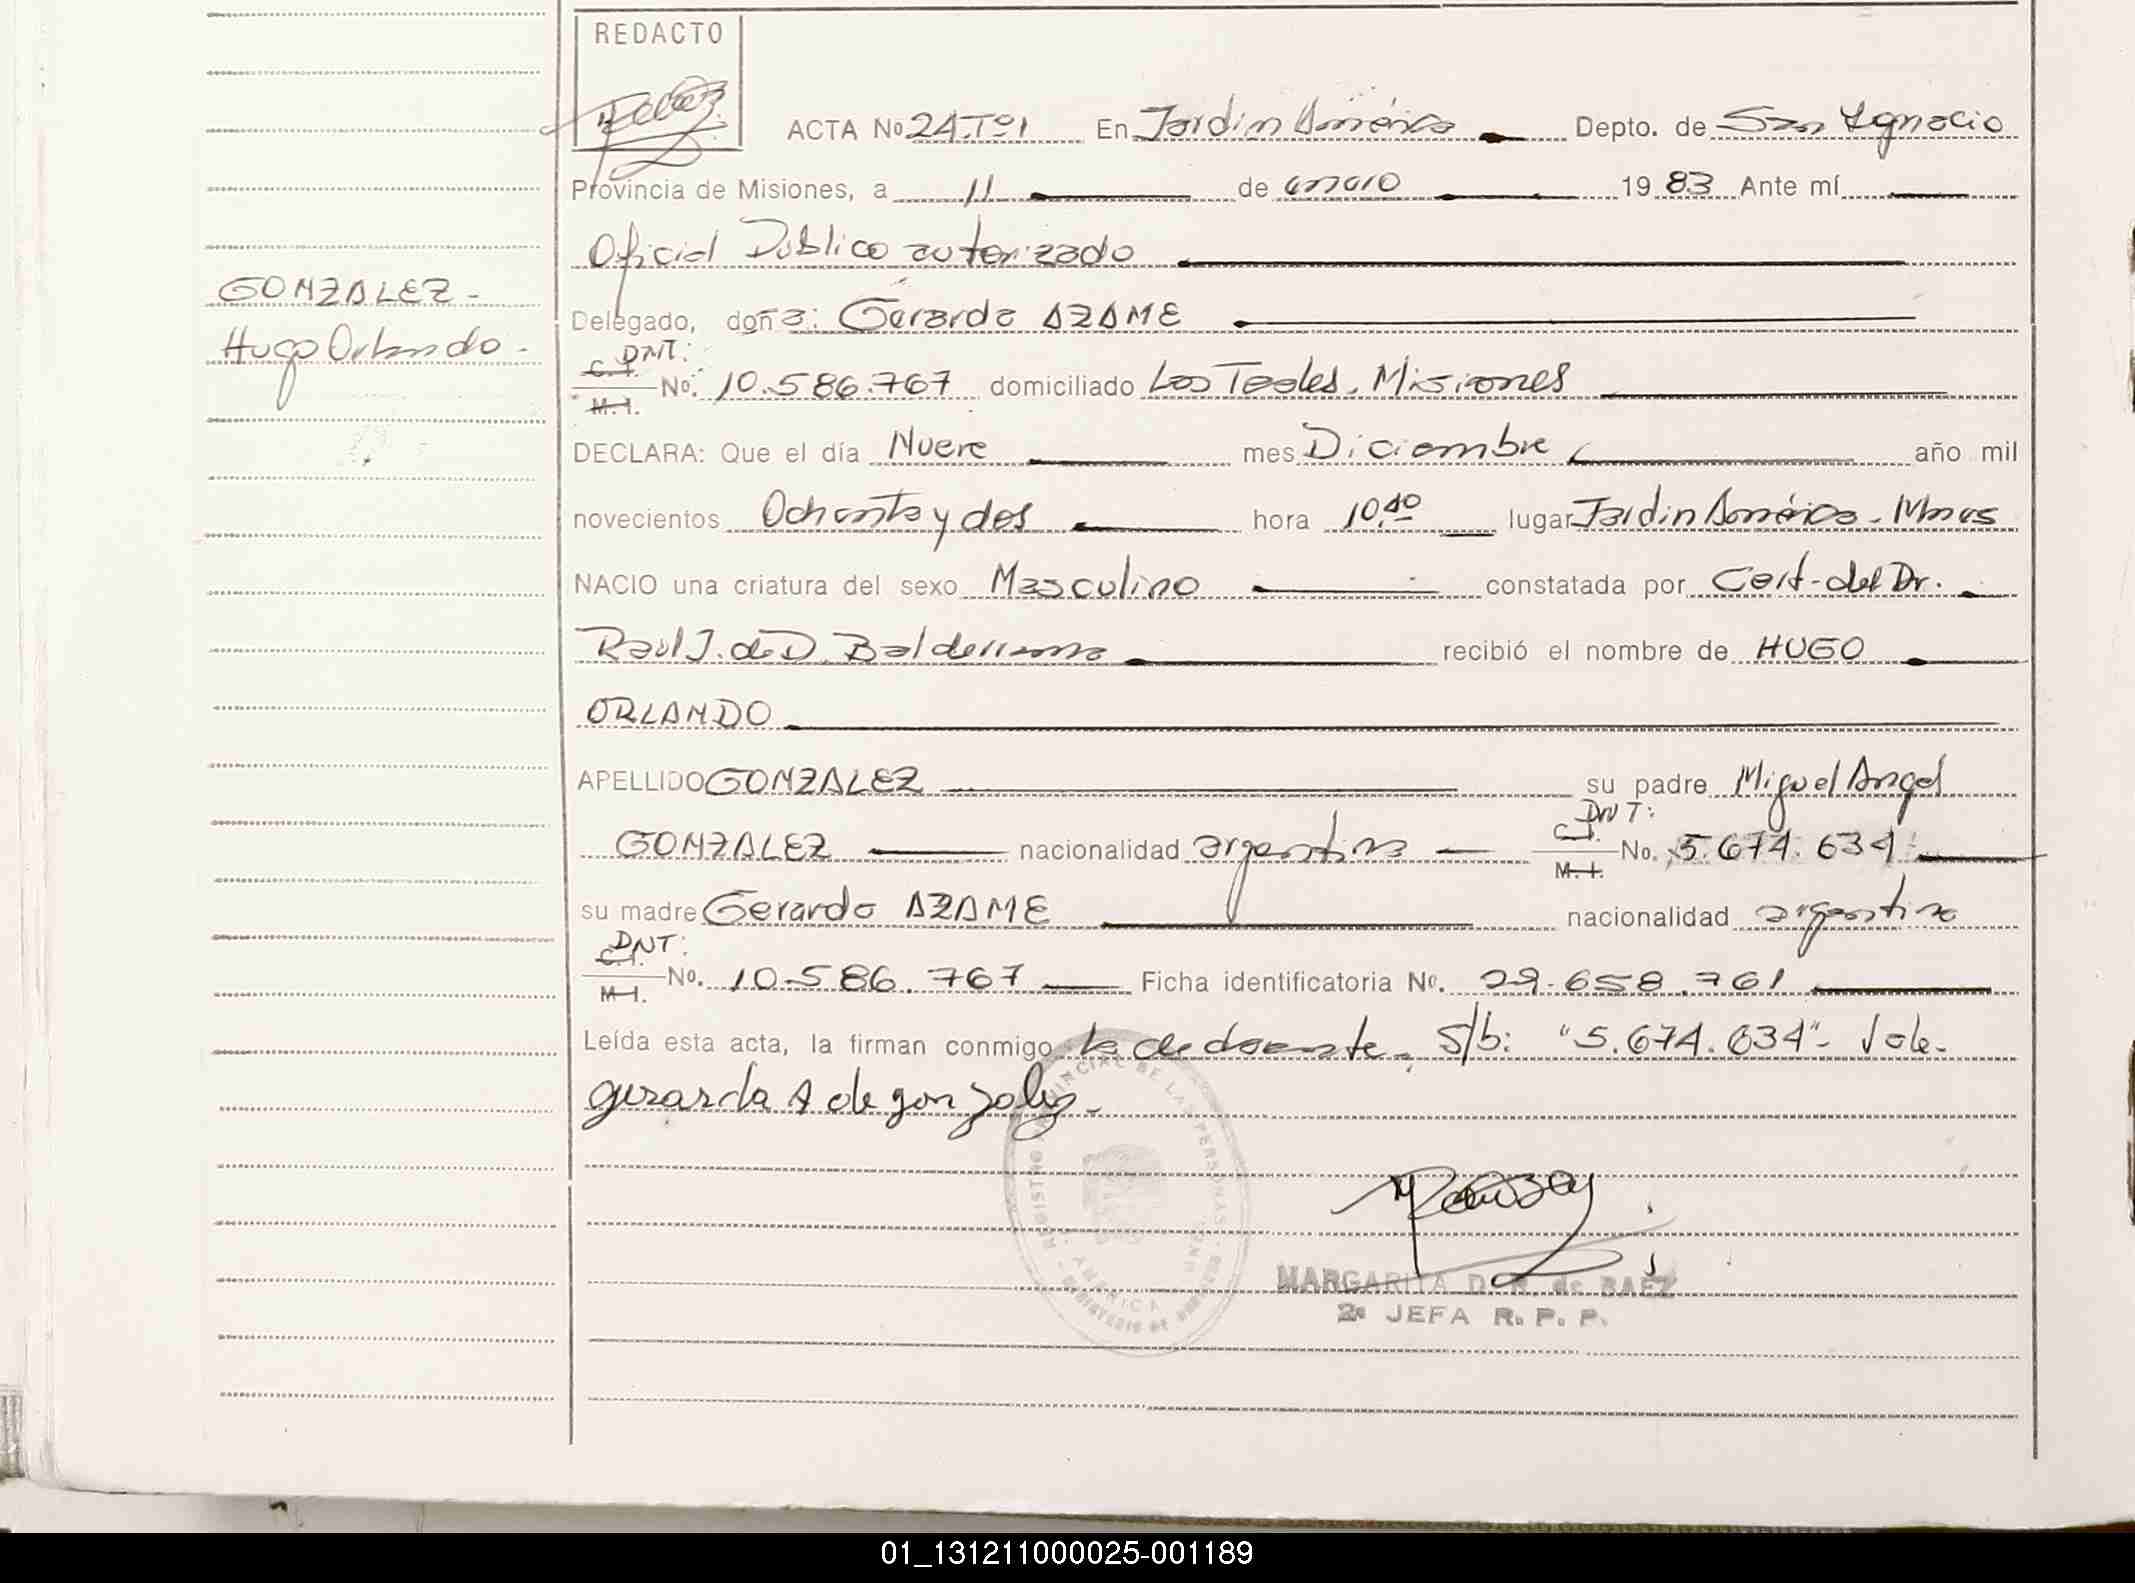 REDACTO
ACTA No 24.Tº1 En Jardin América Depto. de San Ignacio
Provincia de Misiones, a 11 de enero 1983 Ante mí
Oficial Público autorizado
GONZALEZ-
Delegado, doña: Gerarda AZAME
Hugo Orlando-
DNI:
C.I.
M.I. No. 10.586.767 domiciliado Los Teales. Misiones
DECLARA: Que el día Nueve mes Diciembre año mil
novecientos Ochenta y dos hora 10,40 lugar Jardin América-Mnes
NACIO una criatura del sexo Masculino constatada por Cert-del Dr.
Raúl J. de D. Balderrama recibió el nombre de HUGO
ORLANDO
APELLIDO GONZALEZ su padre Miguel Angel
DNI:
GONZALEZ nacionalidad argentina C.I. M.I. No. 5.674.634
su madre Gerarda AZAME nacionalidad argentina
DNI:
C.I.
M.I. No. 10.586.767 Ficha identificatoria No. 29.658.761
Leída esta acta, la firman conmigo la declarante. S/b: "5.674.634"- Vale.
gerarda A de gonzalez-
REGISTRO PROVINCIAL DE LAS PERSONAS
AMERICA
MARGARITA D. R. de BAEZ
2a JEFA R. P. P.
01_131211000025-001189